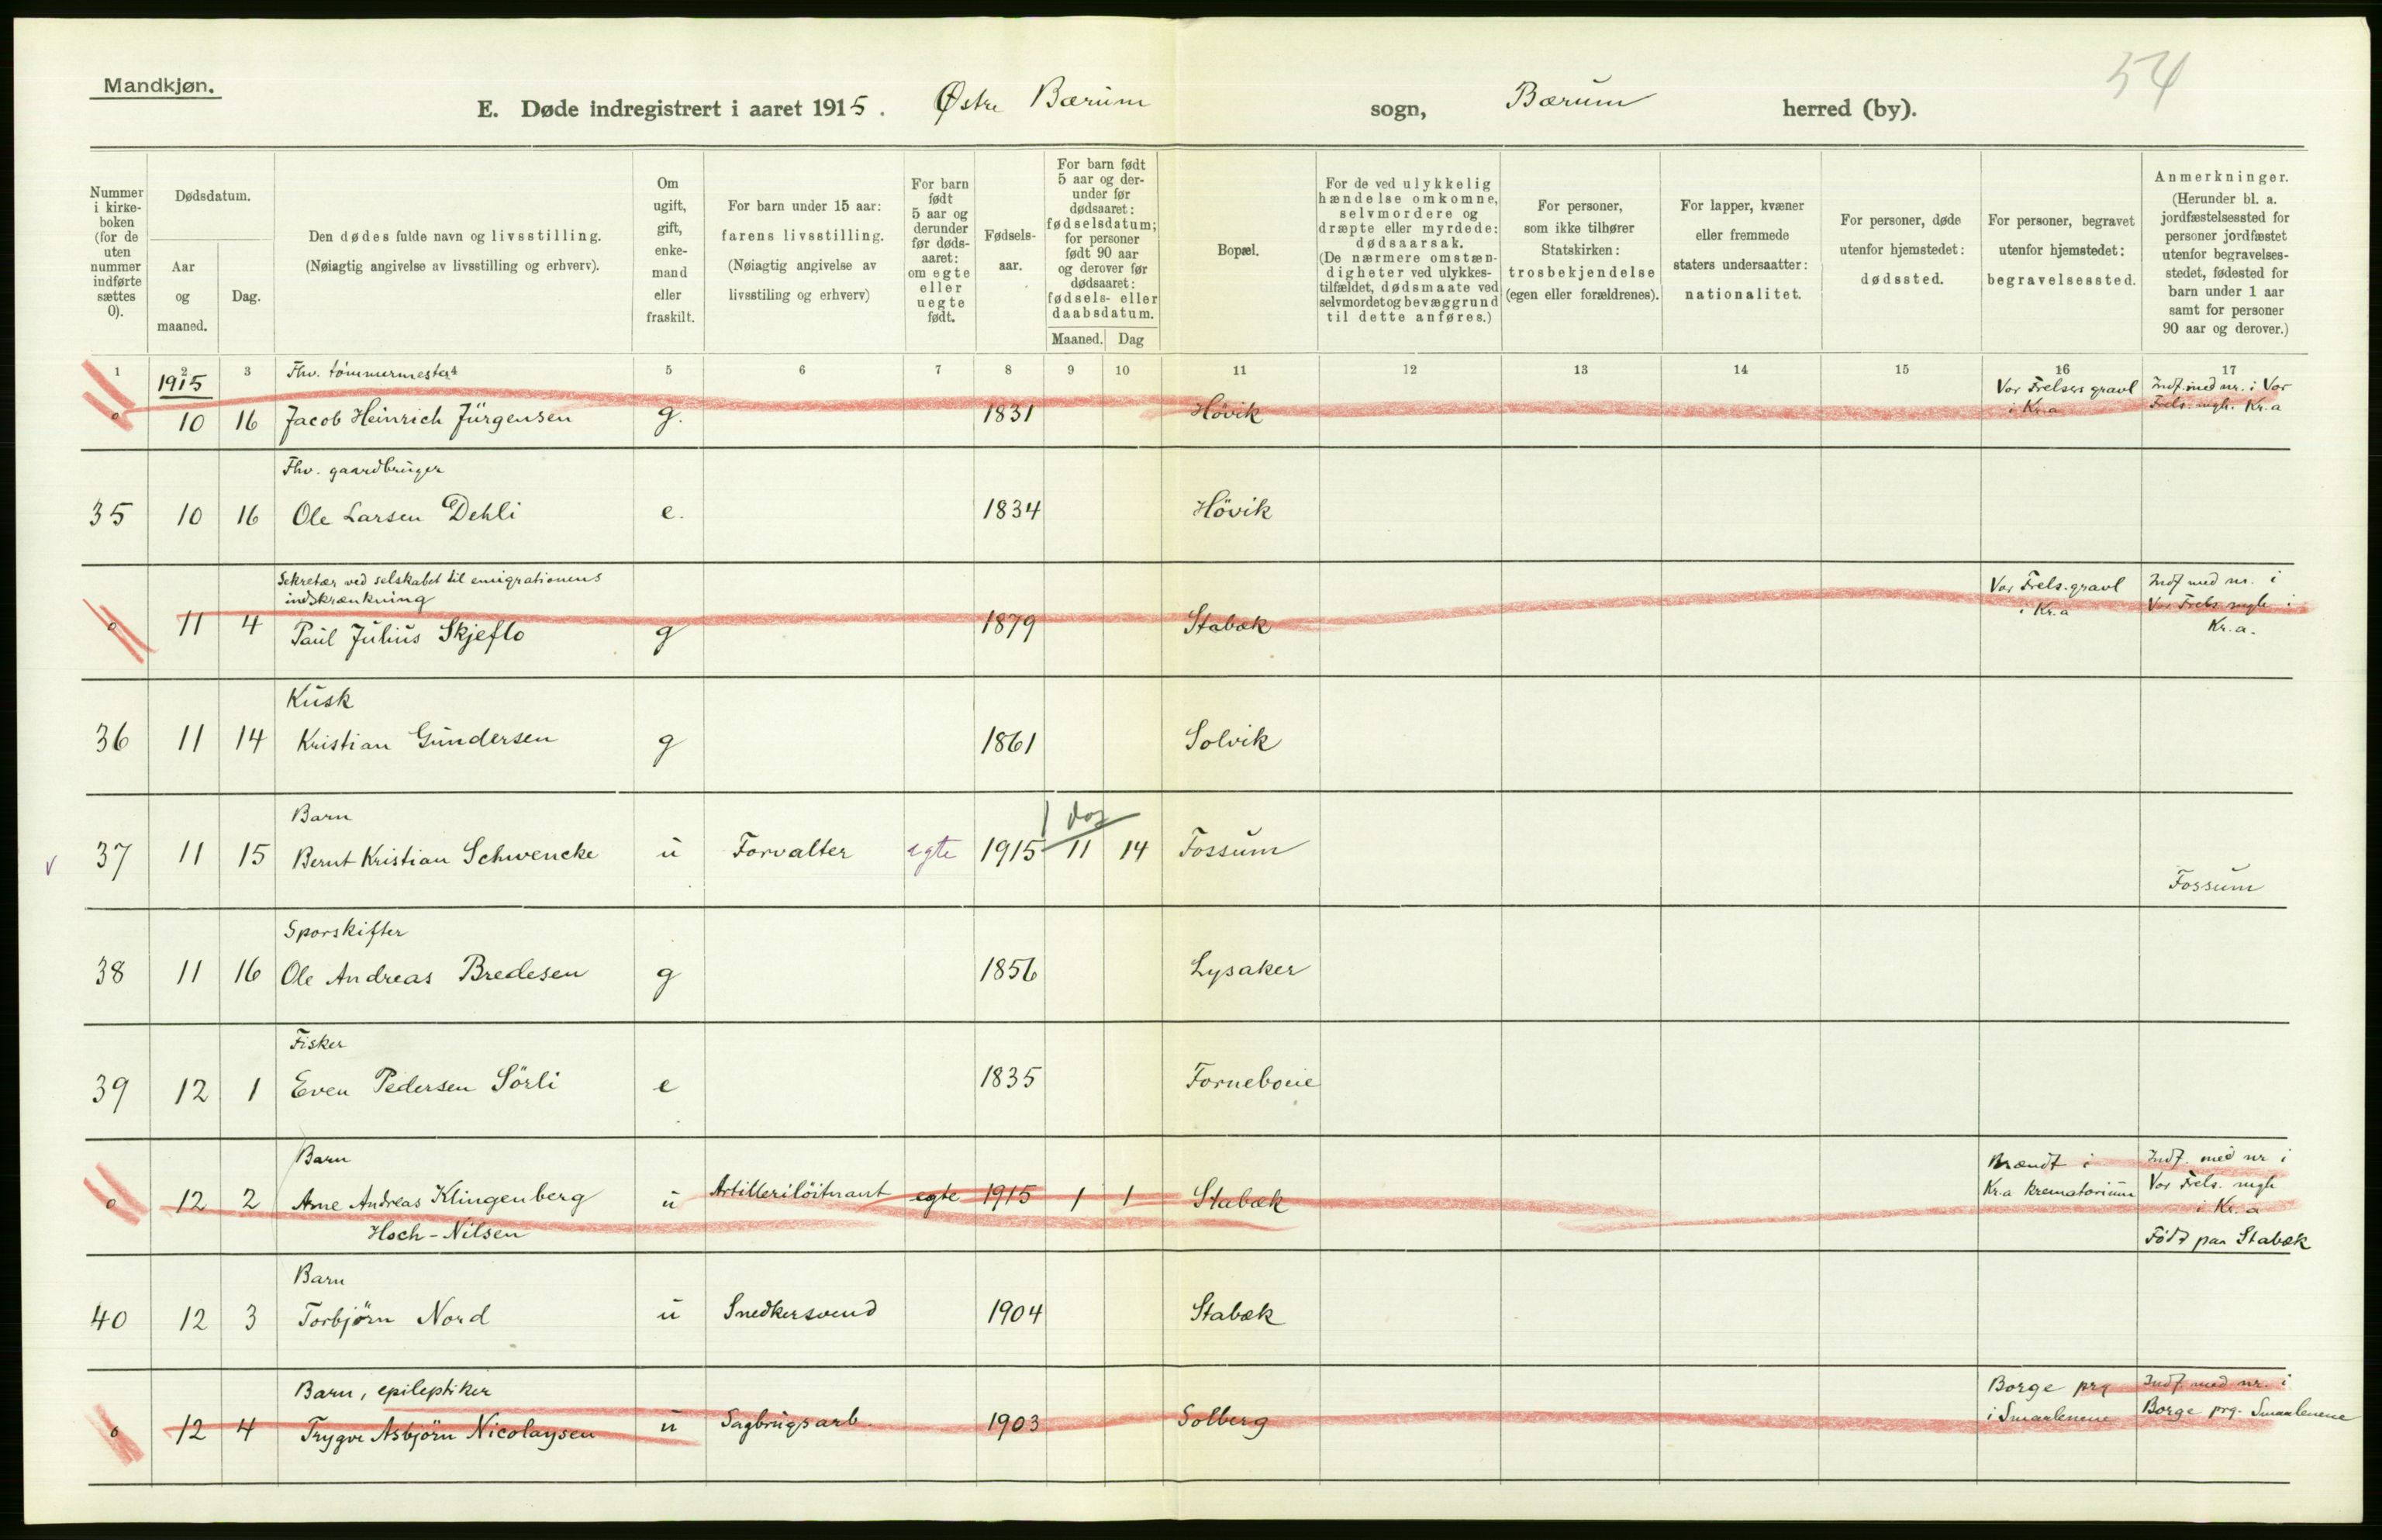 Mandkjøn.
54
E. Døde indregistrert i aaret 1915. Østre Bærum sogn, Bærum herred (by).
Nummer i kirke-boken (for de uten nummer indførte sættes 0).
Dødsdatum.
Aar og maaned.
Dag.
Den dødes fulde navn og livsstilling.
(Nøiagtig angivelse av livsstilling og erhverv).
Om ugift, gift, enke-mand eller fraskilt.
For barn under 15 aar: farens livsstilling.
(Nøiagtig angivelse av livsstiling og erhverv)
For barn født 5 aar og derunder før døds-aaret: om egte eller uegte født.
Fødsels-aar.
For barn født 5 aar og der-under før dødsaaret: fødselsdatum; for personer født 90 aar og derover før dødsaaret: fødsels- eller daabsdatum.
Maaned. Dag
Bopæl.
For de ved ulykkelig hændelse omkomne, selvmordere og dræpte eller myrdede: dødsaarsak.
(De nærmere omstæn-digheter ved ulykkes-tilfældet, dødsmaate ved selvmordet og bevæggrund til dette anføres.)
For personer, som ikke tilhører Statskirken: trosbekjendelse (egen eller forældrenes).
For lapper, kvæner eller fremmede staters undersaatter: nationalitet.
For personer, døde utenfor hjemstedet: dødssted.
For personer, begravet utenfor hjemstedet: begravelsessted.
Anmerkninger.
(Herunder bl. a. jordfæstelsessted for personer jordfæstet utenfor begravelses-stedet, fødested for barn under 1 aar samt for personer 90 aar og derover.)
1 2 3 5 6 7 8 9 10 11 12 13 14 15 16 17
1915
Fhv. tömmermester
0 10 16 Jacob Heinrich Jürgensen g. 1831 Hövik Vor Frelsers gravl i Kr.a Indf. med nr. i Vor Frels. mgh. Kr.a
Fhv. gaardbruger
35 10 16 Ole Larsen Dehli e. 1834 Hövik
Sekretær ved selskabet til emigrationens
indskrænkning
0 11 4 Paul Julius Skjeflo g 1879 Stabæk Vor Frels. gravl i Kr.a Indf med nr. i Vor Frels mgh i Kr.a.
Kusk
36 11 14 Kristian Gundersen g 1861 Solvik
Barn
1 dag
37 11 15 Bernt Kristian Schwencke u Forvalter egte 1915 11 14 Fossum Fossum
Sporskifter
38 11 16 Ole Andreas Bredesen g 1856 Lysaker
Fisker
39 12 1 Even Pedersen Sörli e 1835 Forneboeie
Barn
0 12 2 Arne Andreas Klingenberg u Artilleriløitnant egte 1915 1 1 Stabæk Brændt i Kr.a krematorium Indf. med nr i Vor Frels. mgh i Kr.a
Hoch-Nilsen Född paa Stabæk
Barn
40 12 3 Torbjörn Nord u Snedkersvend 1904 Stabæk
Barn, epileptiker
0 12 4 Trygve Asbjörn Nicolaysen u Sagbrugsarb. 1903 Solberg Borge prg i Smaalenene Indf med nr. i Borge prg. Smaalenene